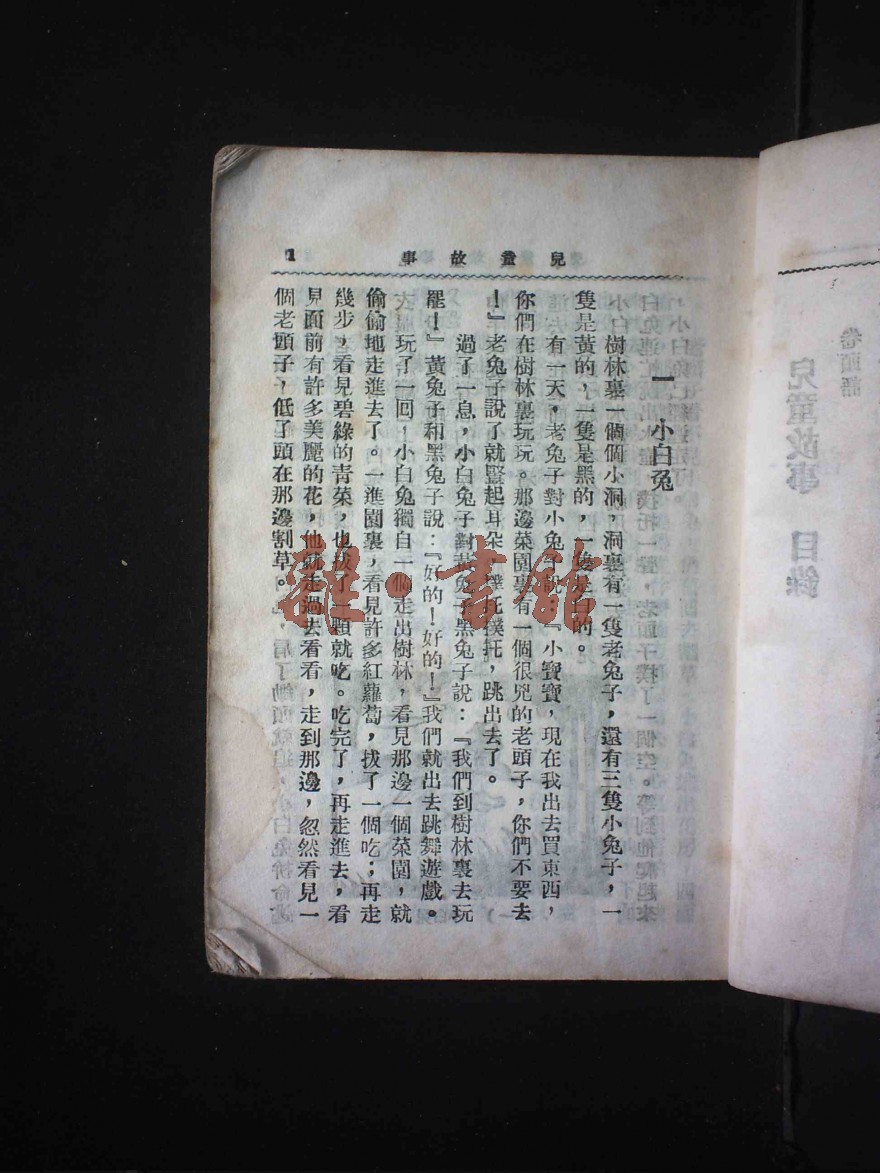 兒童故事
1
一 小白兔
樹林裏一個個小洞，洞裏有一隻老兔子，還有三隻小兔子，一
隻是黃的，一隻是黑的，一隻是白的。
有一天，老兔子對小兔子說：『小寶寶，現在我出去買東西，
你們在樹林裏玩玩。那邊菜園裏有一個很兇的老頭子，你們不要去
！』老兔子說了就豎起耳朵，撲托撲托，跳出去了。
過了一息，小白兔子對黃兔子黑兔子說：『我們到樹林裏去玩
罷！』黃兔子和黑兔子說：『好的！好的！』我們就出去跳舞遊戲。
玩了一回，小白兔獨自一個走出樹林，看見那邊一個菜園，就
偷偷地走進去了。一進園裏，看見許多紅蘿蔔，拔了一個吃；再走
幾步，看見碧綠的青菜，也拔了一顆就吃。吃完了，再走進去，看
見面前有許多美麗的花，他就走過去看看，走到那邊，忽然看見一
個老頭子，低了頭在那邊割草。
雜·書館
卷頭語
兒童故事 目錄